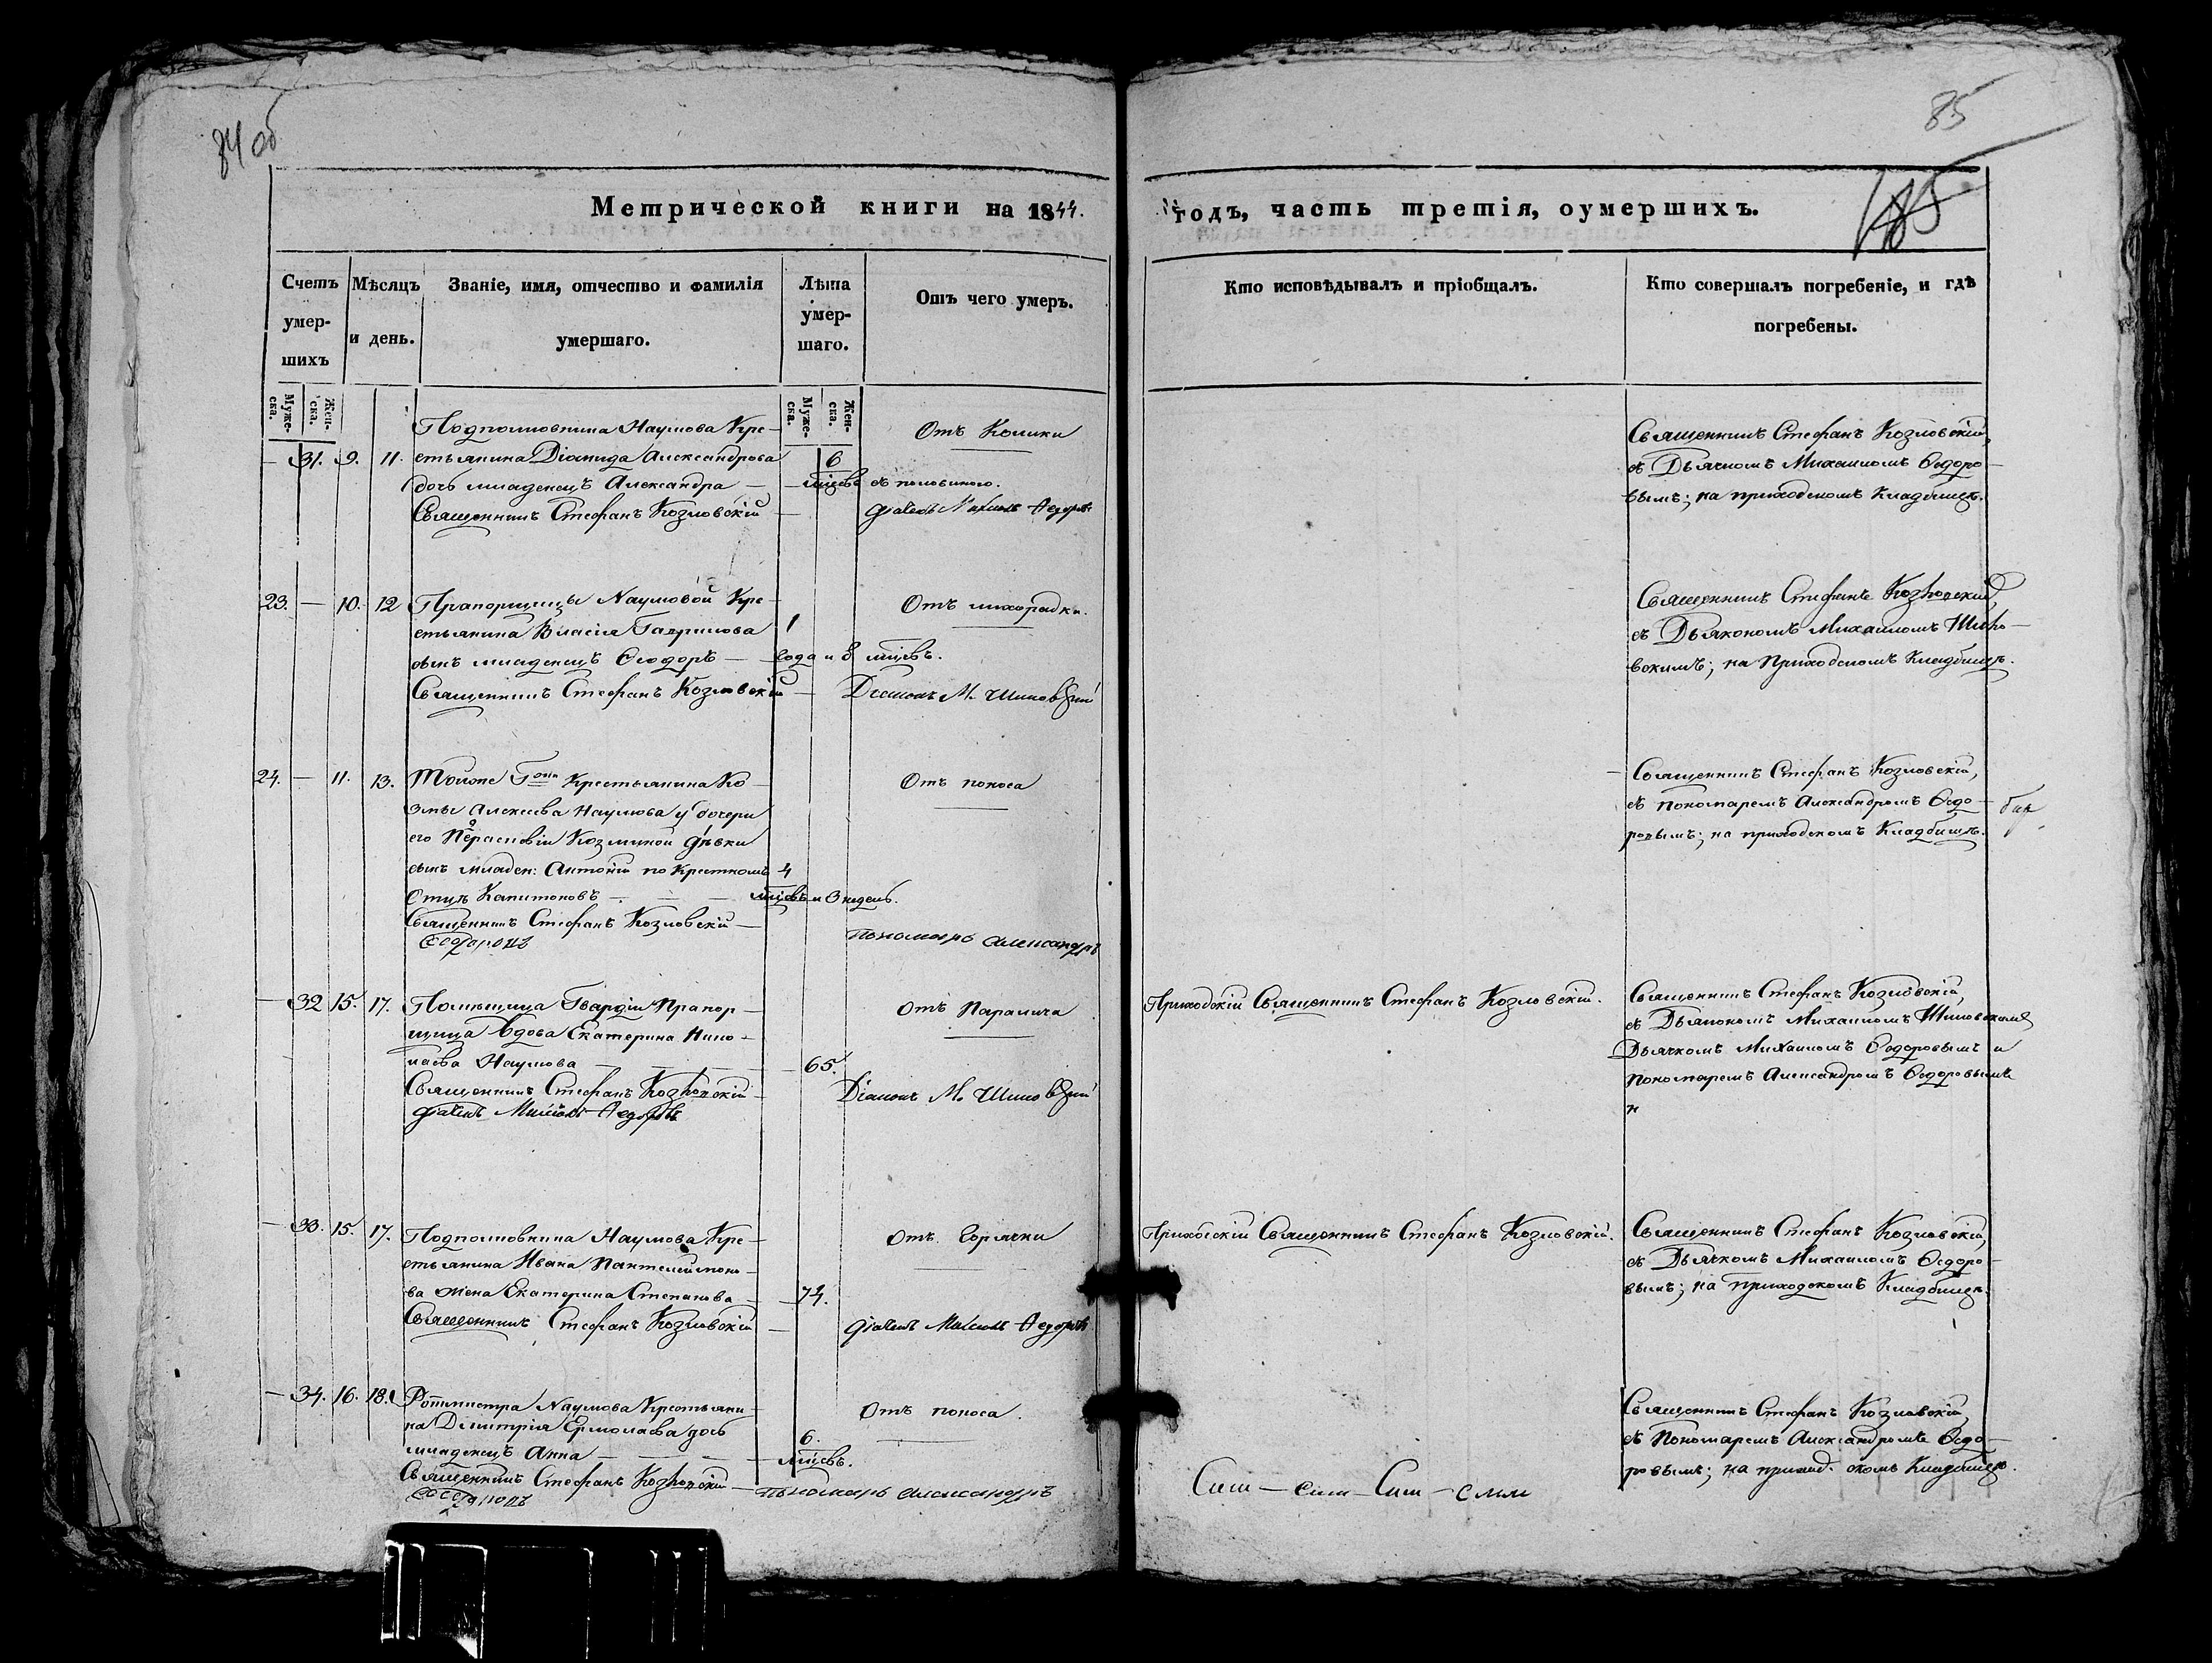 84 об
85
Метрической книги на 1844.
годъ, часть третія, оумершихъ.
185
Счетъ умер-шихъ
Мѣсяцъ и день.
Званіе, имя, отчество и фамилія умершаго.
Лѣта умер-шаго.
Отъ чего умеръ.
Кто исповѣдывалъ и пріобщалъ.
Кто совершалъ погребеніе, и гдѣ погребены.
Муже-ска.
Жен-ска.
Муже-ска.
Жен-ска.
— 31. 9. 11.
Подполковника Наумова Кре-
стьянина Діамида Александрова
дочь младенецъ Александра —
Священникъ Стефанъ Козловскій —
6
мцовъ съ половиною.
Отъ Колики
Дьячекъ Михаилъ Федоровъ
Священникъ Стефанъ Козловскій,
съ Дьячкомъ Михаиломъ Ѳедоро-
вымъ; на приходскомъ Кладбищѣ.
23. — 10. 12
Прапорщицы Наумовой Кре-
стьянина Власія Гаврилова
сынъ младенецъ Ѳеодоръ —
Священникъ Стефанъ Козловскій —
1
года и 8 мцовъ.
Отъ лихорадки.
Діаконъ М. Шиповскій
Священникъ Стефанъ Козловскій,
съ Дьякономъ Михаиломъ Шипо-
вскимъ; на Приходскомъ Кладбищѣ.
24. — 11. 13.
Тойже Гжи Крестьянина Ко-
змы Алексѣева Наумова у дочери
его Перасковіи Козминой дѣвки
сынъ младен: Антоній по Крестномъ
Отцѣ Капитоновъ —
Священникъ Стефанъ Козловскій —
Ѳедоровъ
4
мцовъ и 3 недѣль.
Отъ поноса
Пономарь Александръ
Священникъ Стефанъ Козловскій,
съ пономаремъ Александромъ Ѳедо-
ровымъ; на приходскомъ Кладбищѣ.
— 32 15. 17.
Помѣщица Гвардіи Прапор-
щица Вдова Екатерина Нико-
лаева Наумова —
Священникъ Стефанъ Козловскій —
Дьячекъ Михаилъ Федоровъ
65.
Отъ Паралича
Діаконъ М. Шиповскій
Приходскій Священникъ Стефанъ Козловскій.
Священникъ Стефанъ Козловскій,
съ Дьякономъ Михаиломъ Шиповскимъ
Дьячкомъ Михаиломъ Ѳедоровымъ и
пономаремъ Александромъ Ѳедоровымъ
н
— 33. 15. 17.
Подполковника Наумова Кре-
стьянина Ивана Пантелеймоно-
ва жена Екатерина Степанова —
Священникъ Стефанъ Козловскій —
74.
Отъ Горячки
Дьячекъ Михаилъ Федоровъ
Приходскій Священникъ Стефанъ Козловскій.
Священникъ Стефанъ Козловскій,
съ Дьячкомъ Михаиломъ Ѳедоро-
вымъ; на приходскомъ Кладбищѣ.
— 34. 16. 18.
Ротмистра Наумова Крестьяни-
на Димитрія Ермолаева дочь
младенецъ Анна —
Священникъ Стефанъ Козловскій —
Ѳедоровъ
6.
мцовъ.
Отъ поноса.
Пономарь Александръ
Священникъ Стефанъ Козловскій,
съ Пономаремъ Александромъ Ѳедо-
ровымъ; на приход-скомъ Кладбищѣ.